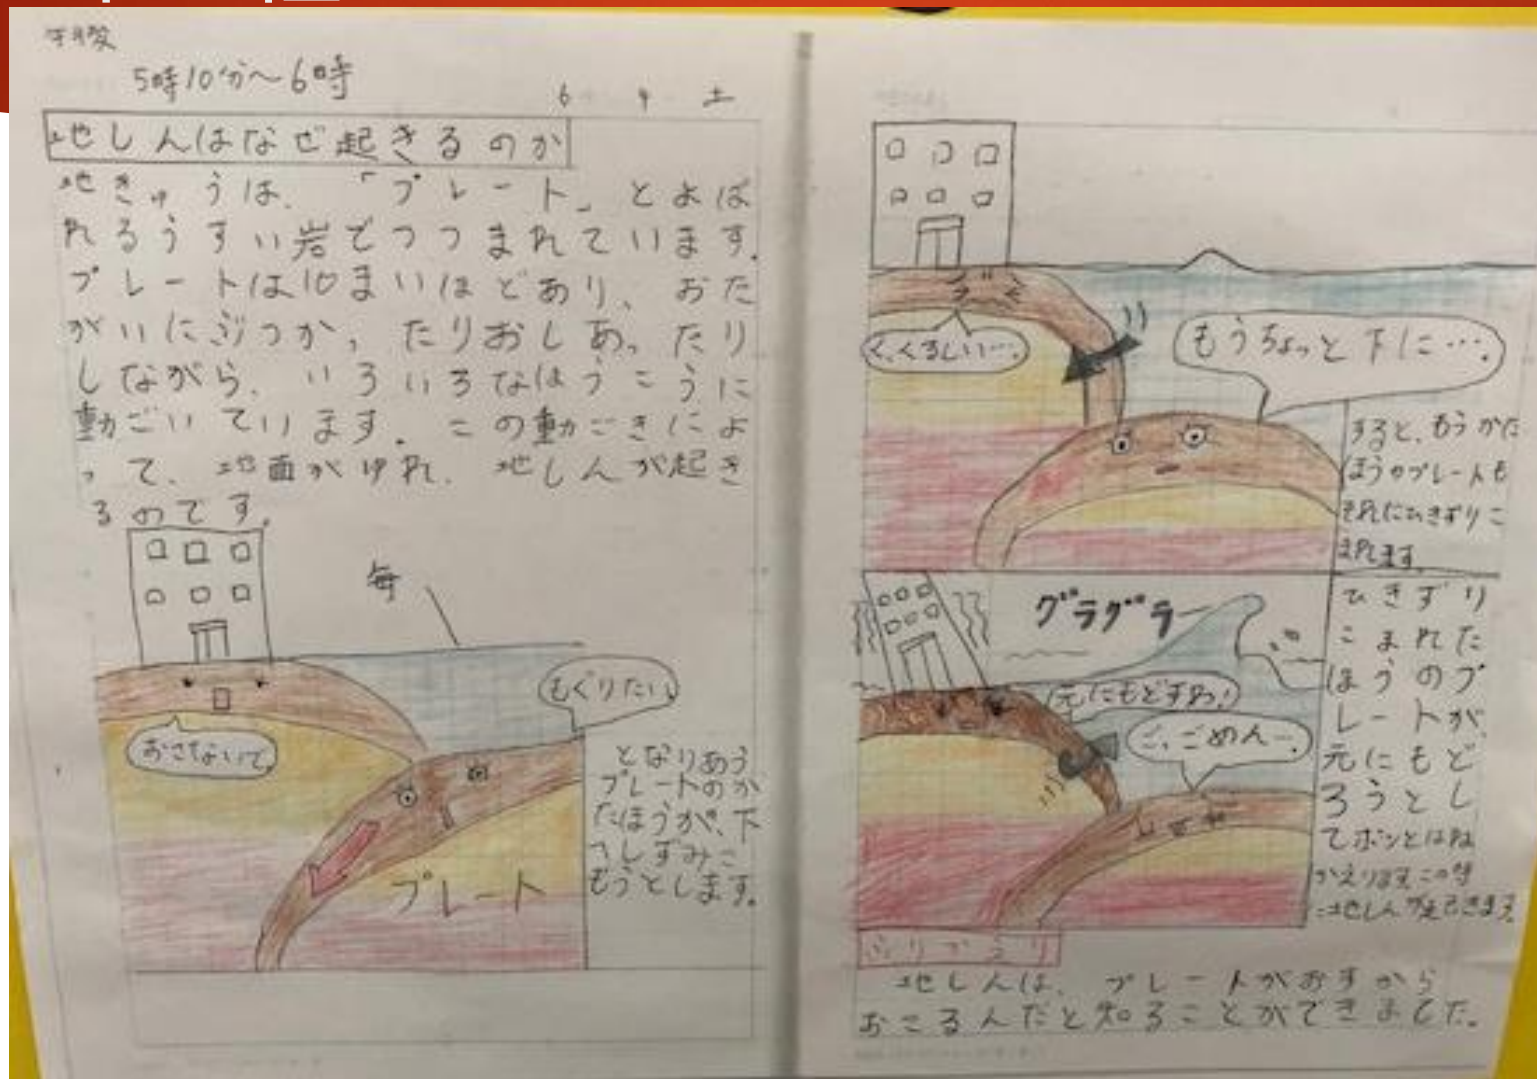 5時10分〜6時
6 4 土
地しんはなぜ起きるのか
地きゅうは、「プレート」とよば
れるうすい岩でつつまれています。
プレートは10まいほどあり、おた
がいにぶつかったりおしあったり
しながら、いろいろなほうこうに
動ごいています。この動ごきによ
って、地面がゆれ、地しんが起き
るのです。
海
もぐりたい
おさないで
プレート
となりあう
プレートのか
たほうが、下
へしずみこ
もうとします。
く、くるしい…。
もうちょっと下に…。
すると、もうかた
ほうのプレートも
それにひきずりこ
まれます。
グラグラ
元にもどすわ!
ご、ごめんー。
ひきずり
こまれた
ほうのプ
レートが、
元にもど
ろうとし
てボンとはね
かえります。この時
地しんが起きます。
ふりかえり
地しんは、プレートがおすから
おこるんだと知ることができました。